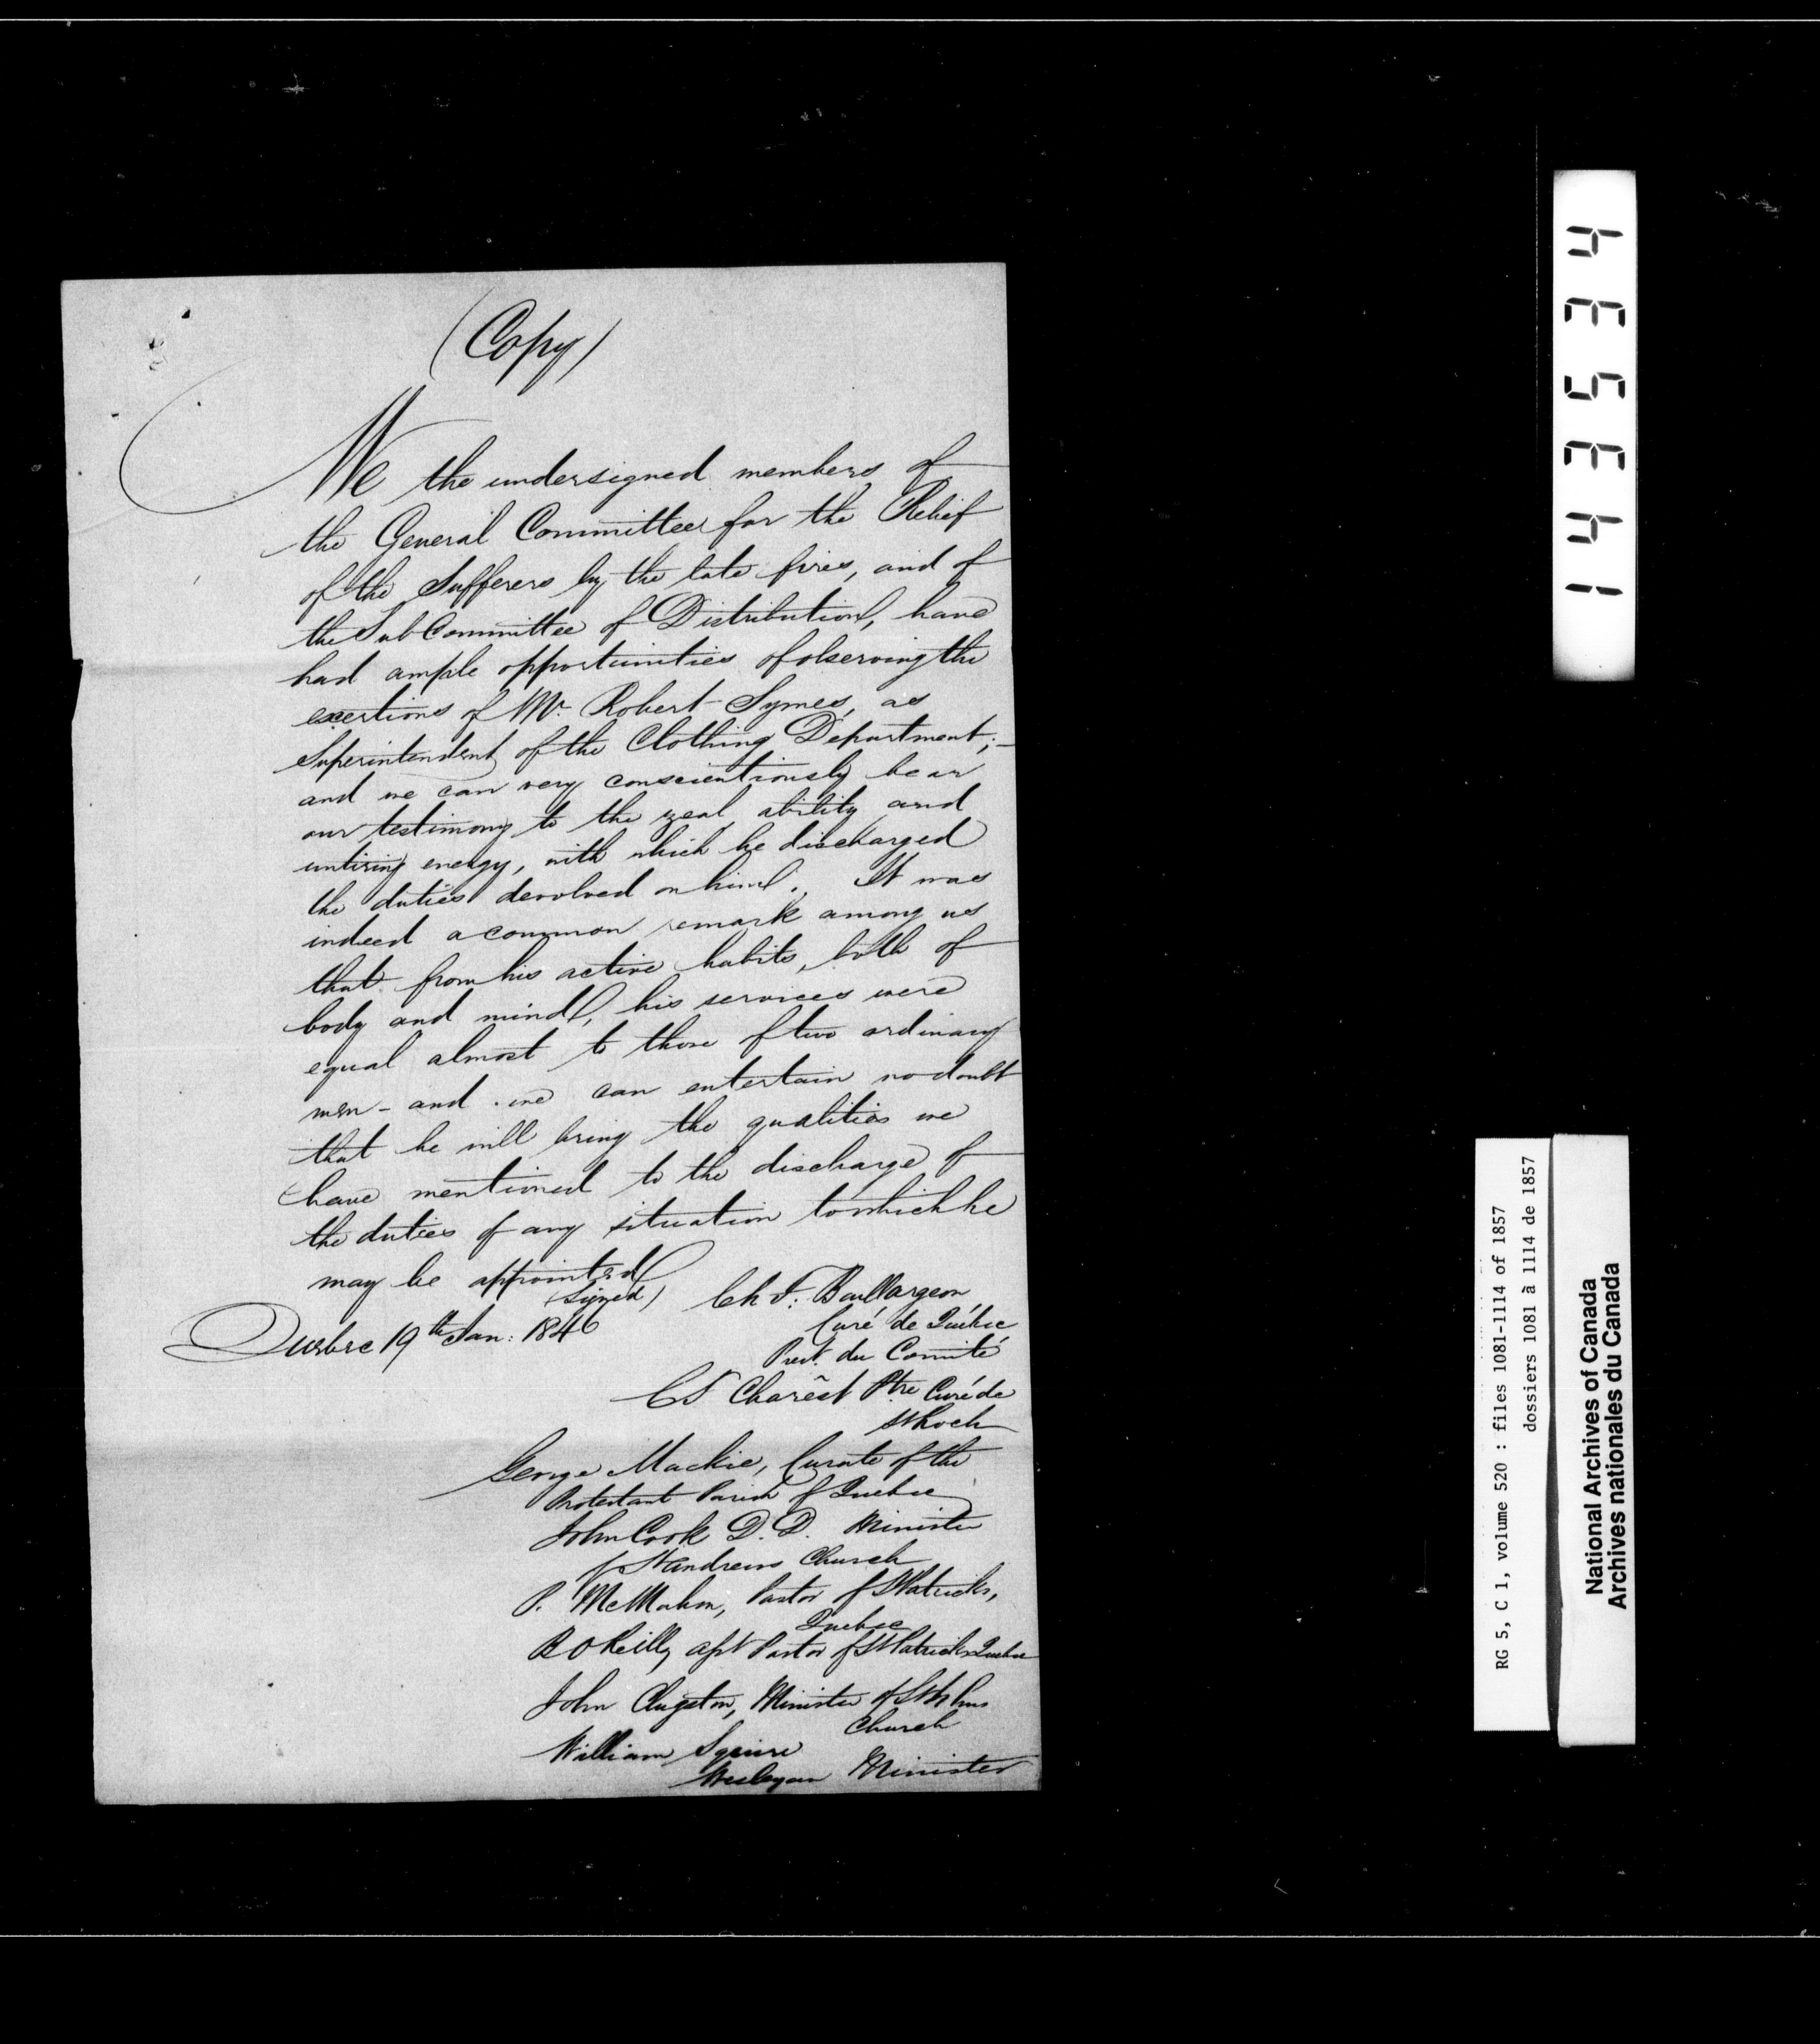 (Copy)
We the undersigned members of
the General Committee for the Relief
of the Sufferers by the late fires, and of
the Sub Committee of Distribution, have
had ample opportunities of observing the
exertions of Mr. Robert Symes, as
Superintendent of the Clothing Department;—
and we can very conscientiously bear
our testimony to the zeal ability and
untiring energy, with which he discharged
the duties devolved on him. It was
indeed a common remark among us
that from his active habits, both of
body and mind, his services were
equal almost to those of two ordinary
men - and we can entertain no doubt
that he will bring the qualities we
have mentioned to the discharge of
the duties of any situation to which he
may be appointed
(Signed) Ch F: Baillargeon
Quebec 19th Jan: 1846
Curé de Québec
Prest. du Comité
Charêst Ptre Curé de
St Roch
George Mackie, Curate of the
Protestant Parish of Quebec
John Cook D.D. Minister
of St Andrews Church
P. McMahon, Pastor of St Patricks,
Quebec
B O Reilly asst Pastor of St Patricks Quebec
John Clugston, Minister of St Johns
Church
William Squire
Wesleyan Minister
143534
RG 5, C 1, volume 520 : files 1081-1114 of 1857
dossiers 1081 à 1114 de 1857
National Archives of Canada
Archives nationales du Canada